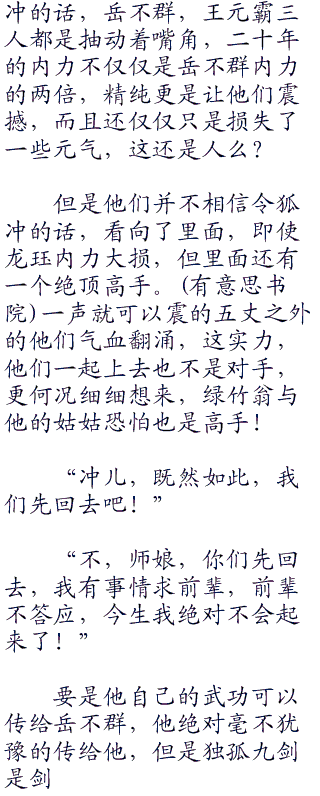 冲的话，岳不群，王元霸三
人都是抽动着嘴角，二十年
的内力不仅仅是岳不群内力
的两倍，精纯更是让他们震
撼，而且还仅仅只是损失了
一些元气，这还是人么？
但是他们并不相信令狐
冲的话，看向了里面，即使
龙珏内力大损，但里面还有
一个绝顶高手。(有意思书
院)一声就可以震的五丈之外
的他们气血翻涌，这实力，
他们一起上去也不是对手，
更何况细细想来，绿竹翁与
他的姑姑恐怕也是高手！
“冲儿，既然如此，我
们先回去吧！”
“不，师娘，你们先回
去，我有事情求前辈，前辈
不答应，今生我绝对不会起
来了！”
要是他自己的武功可以
传给岳不群，他绝对毫不犹
豫的传给他，但是独孤九剑
是剑